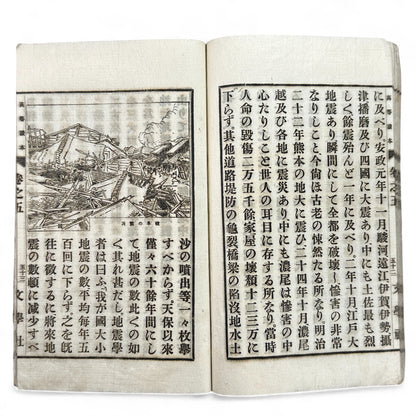 に及べり安政元年十一月駿河遠江伊賀伊勢攝
津播磨及び四國に大震あり中にも土佐最も烈
しく餘震殆んど一年に及べり二年十月江戸大
地震あり瞬間にして全都を破壊し慘害の非常
なりしこと今尙ほ古老の悚然たる所なり明治
二十二年熊本の地大に震ひ二十四年十月濃尾
越及び各地に震災あり中にも濃尾は慘害の中
心たりしこと世人の耳目に存する所なり當時
人命の毀傷二万五千餘家屋の壊頽十二三万に
下らず其他道路堤防の龜裂橋梁の陷沒地水土
沙の噴出等一々枚擧
すべからず天保以來
僅々六十餘年間にし
て地震の數此くの如
く其れ甚だし地震學
者は曰ふ我が國大小
地震の數平均毎年五
百回に下らず之を旣
往に徴するに將來地
震の數頓に減少すべ
讀本
卷之五
五十三
文學社